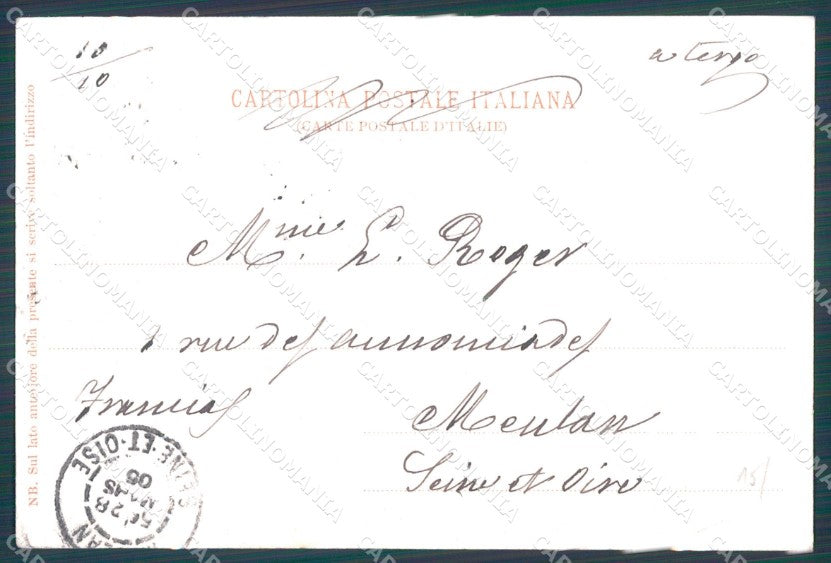 10/10
a tergo
CARTOLINA POSTALE ITALIANA
(CARTE POSTALE D'ITALIE)
NB. Sul lato anteriore della presente si scrive soltanto l'indirizzo
Mme. L. Roger
rue des annonciades
Francia
Meulan
Seine et Oise
SEINE-ET-OISE
28
MARS
05
15/
CARTOLINOMANIA